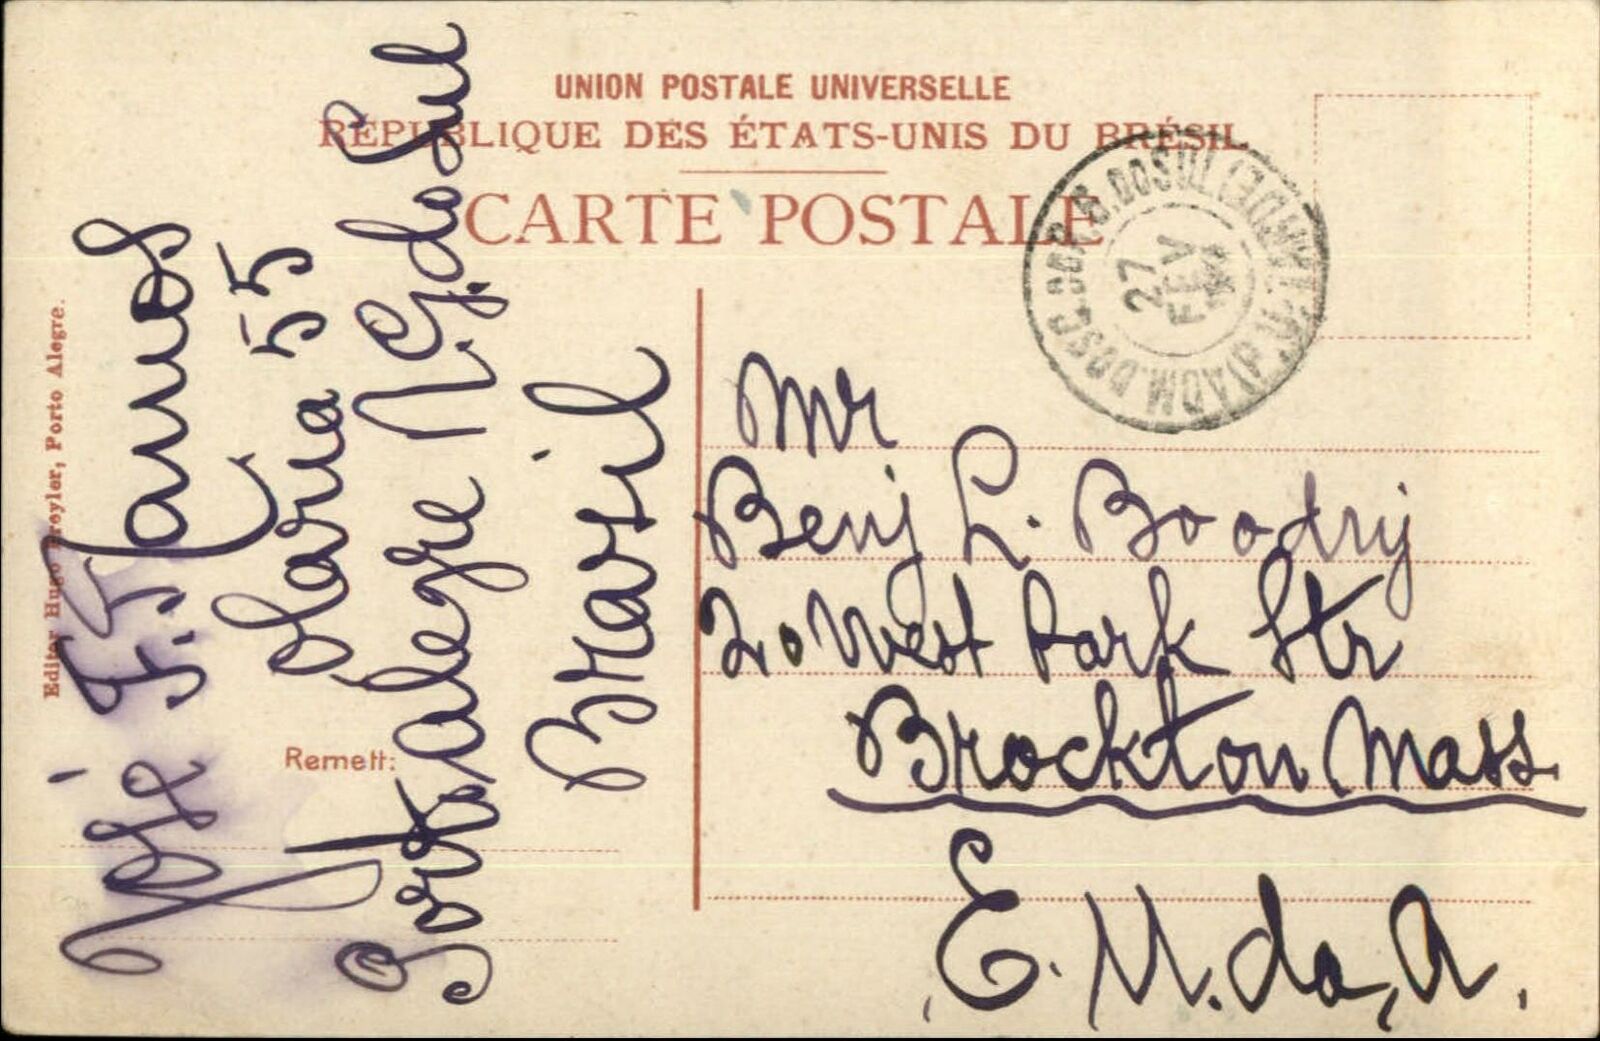 UNION POSTALE UNIVERSELLE
RÉPUBLIQUE DES ÉTATS-UNIS DU BRÉSIL
CARTE POSTALE
27
FEV
Editor Hugo Freyler, Porto Alegre.
José F.
55
Porto Alegre R.G. do Sul
Brasil
Remett:
Mr
Benj L. Boodry
20 West Park Str
Brockton Mass
E. U. da A.